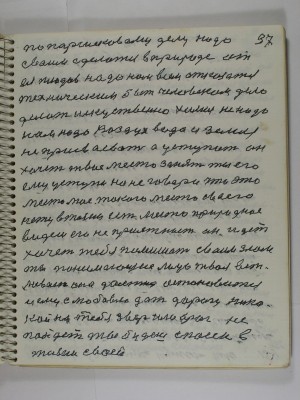 по паршековому делу надо 97
своим сделатся в природе от
ея людов надо нам всем отказатся
техническим быт человеком дело
делат искуственно химия не надо
нам надо Воздух вода и земля
не присваеват а уступат он
хочет твое место занят ты его
ему уступи но не говори что это
место мое такого место своего
нету в твоем ест место природное
видем его не приметит он идет
хочет тебя помешат своим злом
ты понимающие лицо твоя веж-
ливаст она должна остановится
и ему с любовю дат дарогу нико-
кой на тебя звер или враг не
пойдет ты будеш спасен в
жизни своей